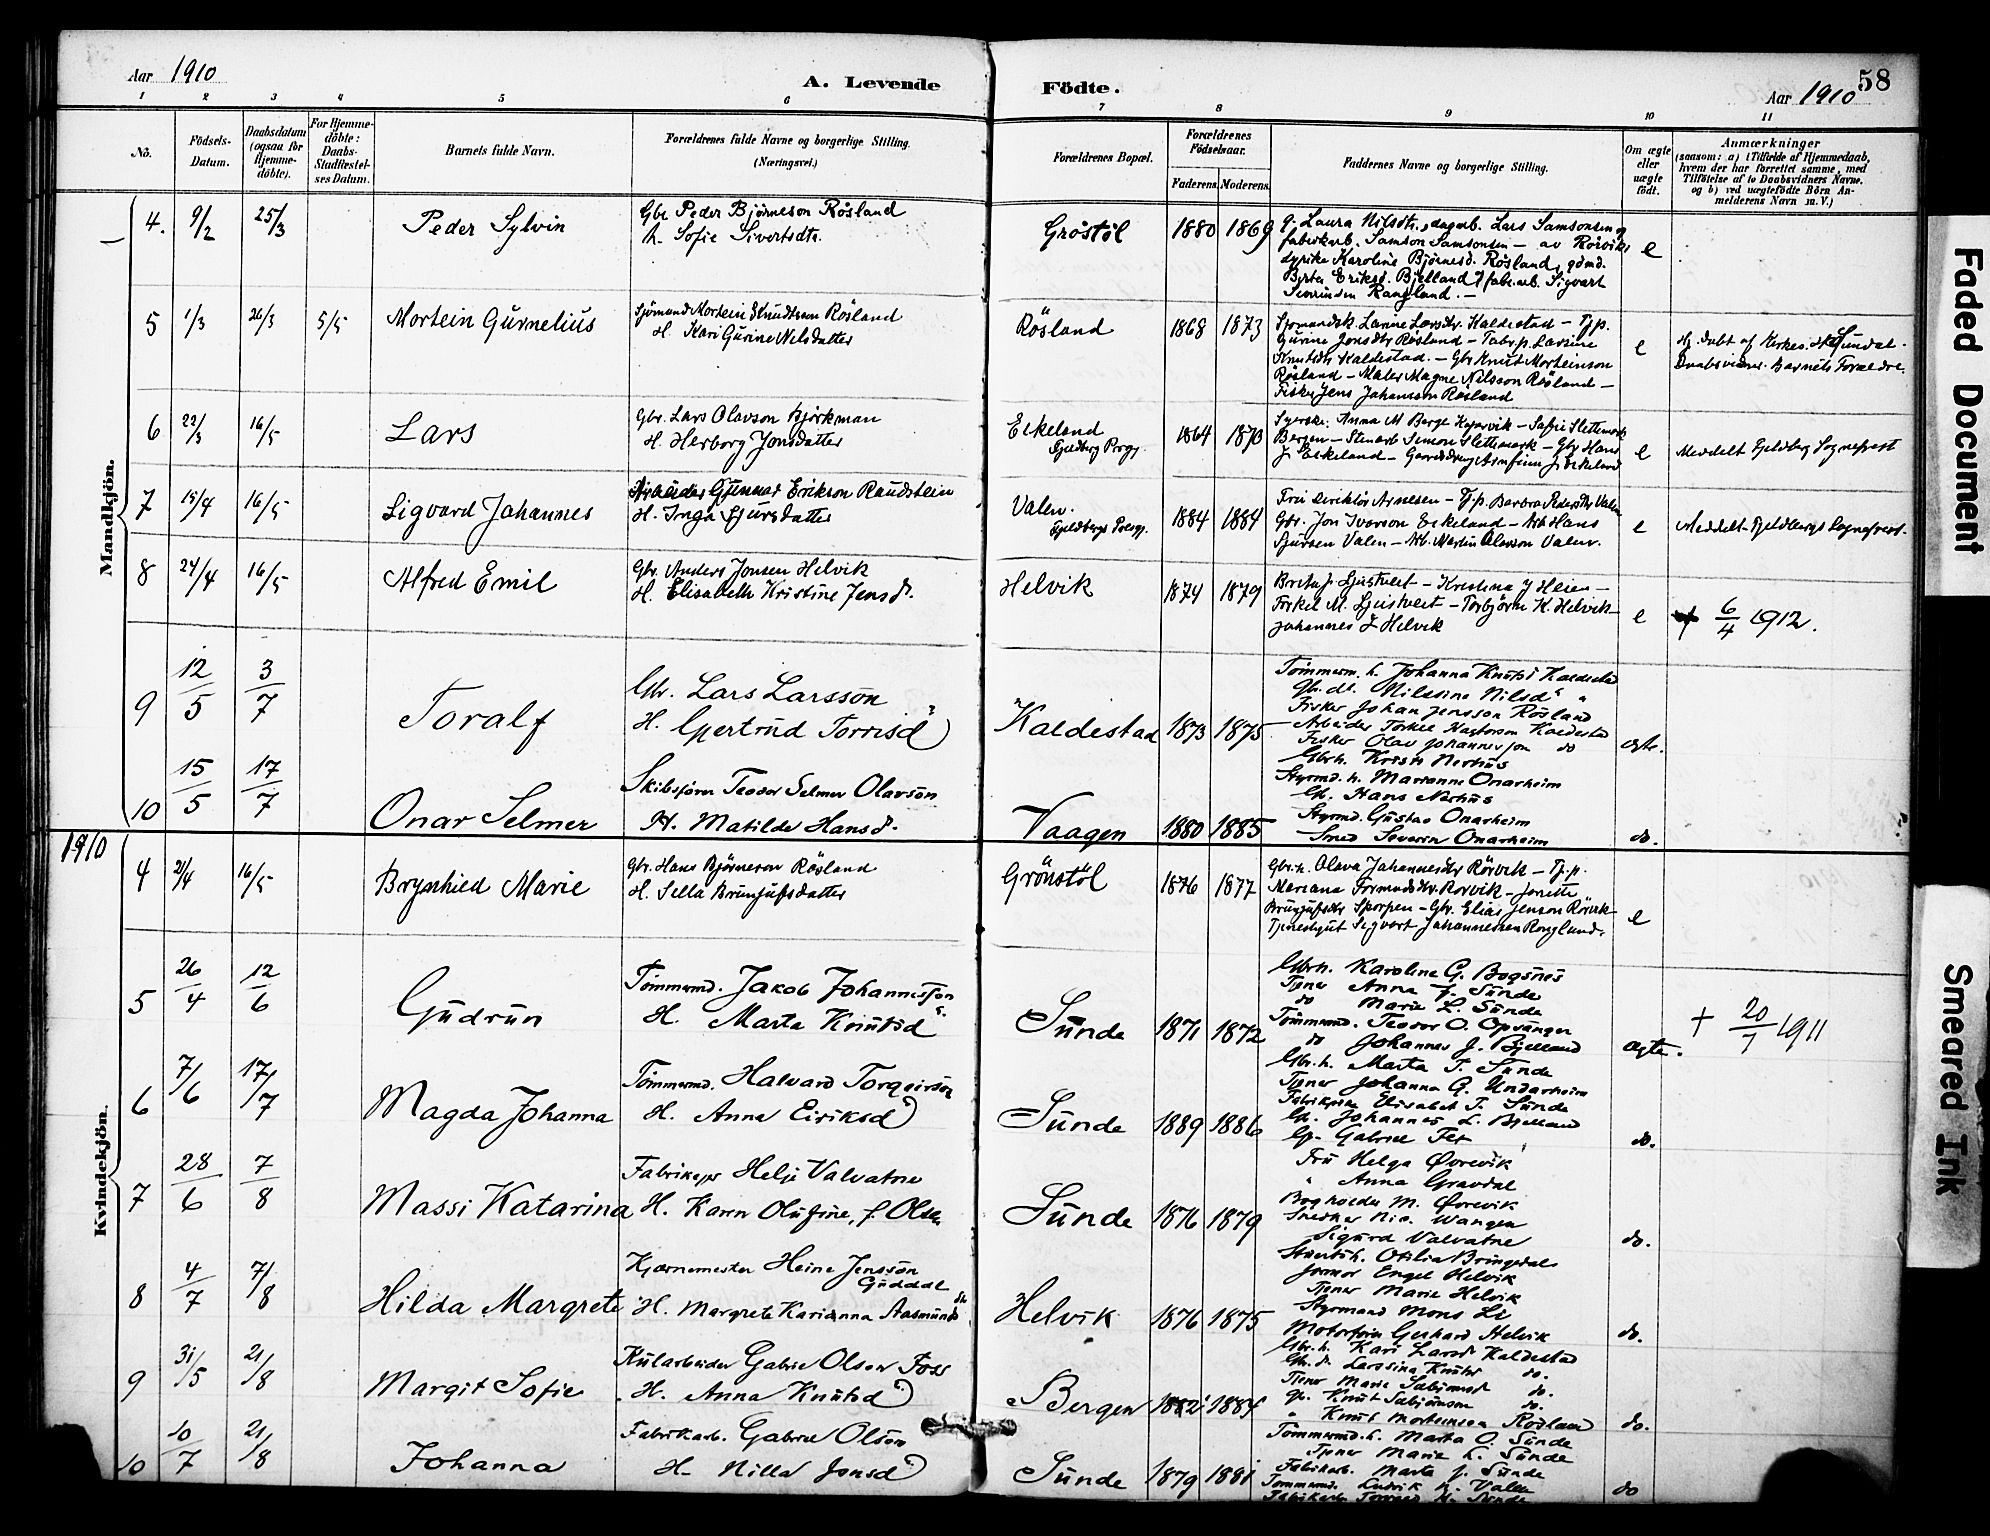 Aar 1910
A. Levende Födte.
58
Aar 1910
1 2 3 4 5 6 7 8 9 10 11
No.
Födsels-Datum.
Daabsdatum (ogsaa for Hjemme-döbte).
For Hjemme-döbte: Daabs-Stadfæstel-ses Datum.
Barnets fulde Navn.
Forældrenes fulde Navne og borgerlige Stilling. (Næringsvei.)
Forældrenes Bopæl.
Forældrenes Födselsaar.
Faderens. Moderens.
Faddernes Navne og borgerlige Stilling.
Om ægte eller uægte födt.
Anmærkninger
(saasom: a) i Tilfælde af Hjemmedaab, hvem der har forrettet samme, med Tilföielse af to Daabsvidners Navne, og b) ved uægtefödte Börn An-melderens Navn m. V.)
Mandkjön.
4. 9/2 25/3 Peder Sylvin
Gbr. Peder Bjørneson Røsland
h. Sofie Sivertsdtr.
Gröstöl 1880 1869
g. Laura Nilsdtr., dagarb. Lars Samsonsen og
fabrikarb. Samson Samsonsen – av Rörvik,
dyrike Karoline Björnesd. Røsland, gdmd.
Berta Eriksd. Bjelland, fabr.arb. Sigvart
Severinsen Rangland. –
e
5 1/3 26/3 5/5 Mortein Gurnelius
Sjömand Mortein Knudtson Røsland
H. Kari Gurine Nelsdatter
Røsland 1868 1873
Sjomandsk. Lanne Larsdtr. Kaldestad – Tj.p.
Gurine Jonsdtr Røsland – Fabr.p. Larsine
Knutsdtr Kaldestad. – Gbr Knut Morteinson
Røsland – Maler Magne Nilsson Røsland –
Fisker Jens Johanson Røsland
e
Hj. døbt af Kirkes. Sundal.
Daabsvidner. Barnets Forældre.
6 22/3 16/5 Lars
Gbr. Lars Olavson Bjørkman
H. Herborg Jonsdatter
Eikeland Fjeldberg Prgj. 1864 1870
Syerske. Anna M Berge Hejorvik – Sofie Slettemark
Bergen – Stenarb Simon Slettemark – Gbr Hans
J. Eikeland – Gaardsdreng Arnfinn J Eikeland
e
Meddelt Fjeldberg Sogneprest
7 15/4 16/5 Sigvard Johannes
Arbeider Gunnar Erikson Raudstein
H. Inga Sjursdatter
Valen. Fjeldbergs Presgj. 1884 1884
Fru Direktör Arnesen – Tj.p. Barbra Pedersdtr Valen
Gbr. Jon Iverson Eikeland – Arb Hans
Sjursen Valen – Arb. Martin Olavson Valen.
e
Meddelt Fjeldbergs Sogneprest.
8 24/4 16/5 Alfred Emil
Gbr. Anders Jonsen Helvik
H. Elisabeth Kristine Jensd.
Helvik 1874 1879
Brita J. Ljustveit – Kristina J Heien –
Torkel M. Ljustveit – Torbjörn K. Helvik –
Johannes L Helvik
e
† 6/4 1912.
9 12/5 3/7 Toralf
Gbr. Lars Larsson
H. Gjertrud Torrisd
Kaldestad 1873 1875
Tömmerm. h. Johanna Knutsd Kaldestad
Gbr. dt. Nilsine Nilsd "
Fisker Johan Jensson Røsland
Arbeider Torkel Kaldestad
Fisker Olav Johannesson do
ægte.
10 15/5 17/7 Onar Selmer
Skibsförer Teodor Selmer Olavson
H. Matilde Hansd.
Vaagen 1880 1885
Gbrh. Kristi Nerhus
Styrmd. h. Marianne Onarheim
Gbr. Hans Nerhus
Styrmd. Gustav Onarheim
Smed Severin Onarheim
do.
1910
Kvindekjön.
4 21/4 16/5 Brynhild Marie
Gbr. Hans Björneson Røsland
H. Sella Brunjulfsdatter
Grönstöl 1876 1877
Gbr.h. Olava Johannesdtr Rörvik – Tj.p.
Mariana Tormodsdtr. Rorvik – Jonette
Brunjulfsdtr Skorpen – Gbr. Elias Jenson Rörvik –
Tjenestgut Sigvart Johannessen Ronglund.
e
5 26/4 12/6 Gudrun
Tömmermd. Jakob Johannesson
H. Marta Knutsd
Sunde 1871 1872
Gbrh. Karoline G. Bogsnes
Tjener Anna J. Sunde
do Marie L. Sunde
Tömmermd. Teodor O. Opsanger
do Johannes J. Bjelland
ægte.
† 20/7 1911
6 7/6 17/7 Magda Johanna
Tömmermd. Halvard Torgeirson
H. Anna Eiriksd
Sunde 1889 1886
Gbr.h. Marta T. Sunde
Tjener Johanna G. Undarheim
Fabrikpike Elisabet T. Sunde
Gbr. Johannes L. Bjelland
Gp. Gabriel Fet
do.
7 28/6 7/8 Massi Katarina
Helje Valvatne
H. Karen Olufine, f. Olsen
Sunde 1876 1879
Fru Helga Øvrevik
" Anna Gravdal
Bogholder M. Øvrevik
Snedker Nic. Wangen
Sigurd Valvatne
do.
8 4/7 7/8 Hilda Margrete
Kjærnemester Heine Jensson Guddal
H. Margrete Karianna Aasmundsdtr
Helvik 1876 1875
Otilia Bringedal
Jormor Engel Helvik
Tjener Marie Helvik
Styrmand Mons Li
Motorförer Gerhard Helvik
do.
9 31/5 21/8 Margit Sofie
Kularbeider Gabriel Olson Foss
H. Anna Knutsd
Bergen 1882 1884
Gbr.h. Kari Larsd Kaldestad
Gbr. d. Larssina Knutsd do.
Tjener Marie Sæbjörnsd do.
Gp. Knut Sæbjörnson do.
" Knut Morteinsen Rösland
do.
10 10/7 21/8 Johanna
Fabrikarb. Gabriel Olson
H. Nilla Jonsd
Sunde 1879 1881
Tömmermd. h. Marta O. Sunde
Tjener Marie L. Sunde
Fabrikarb. Marta J. Sunde
Tömmermd. Ludvik H. Valen
do
Faded Document
Smeared Ink